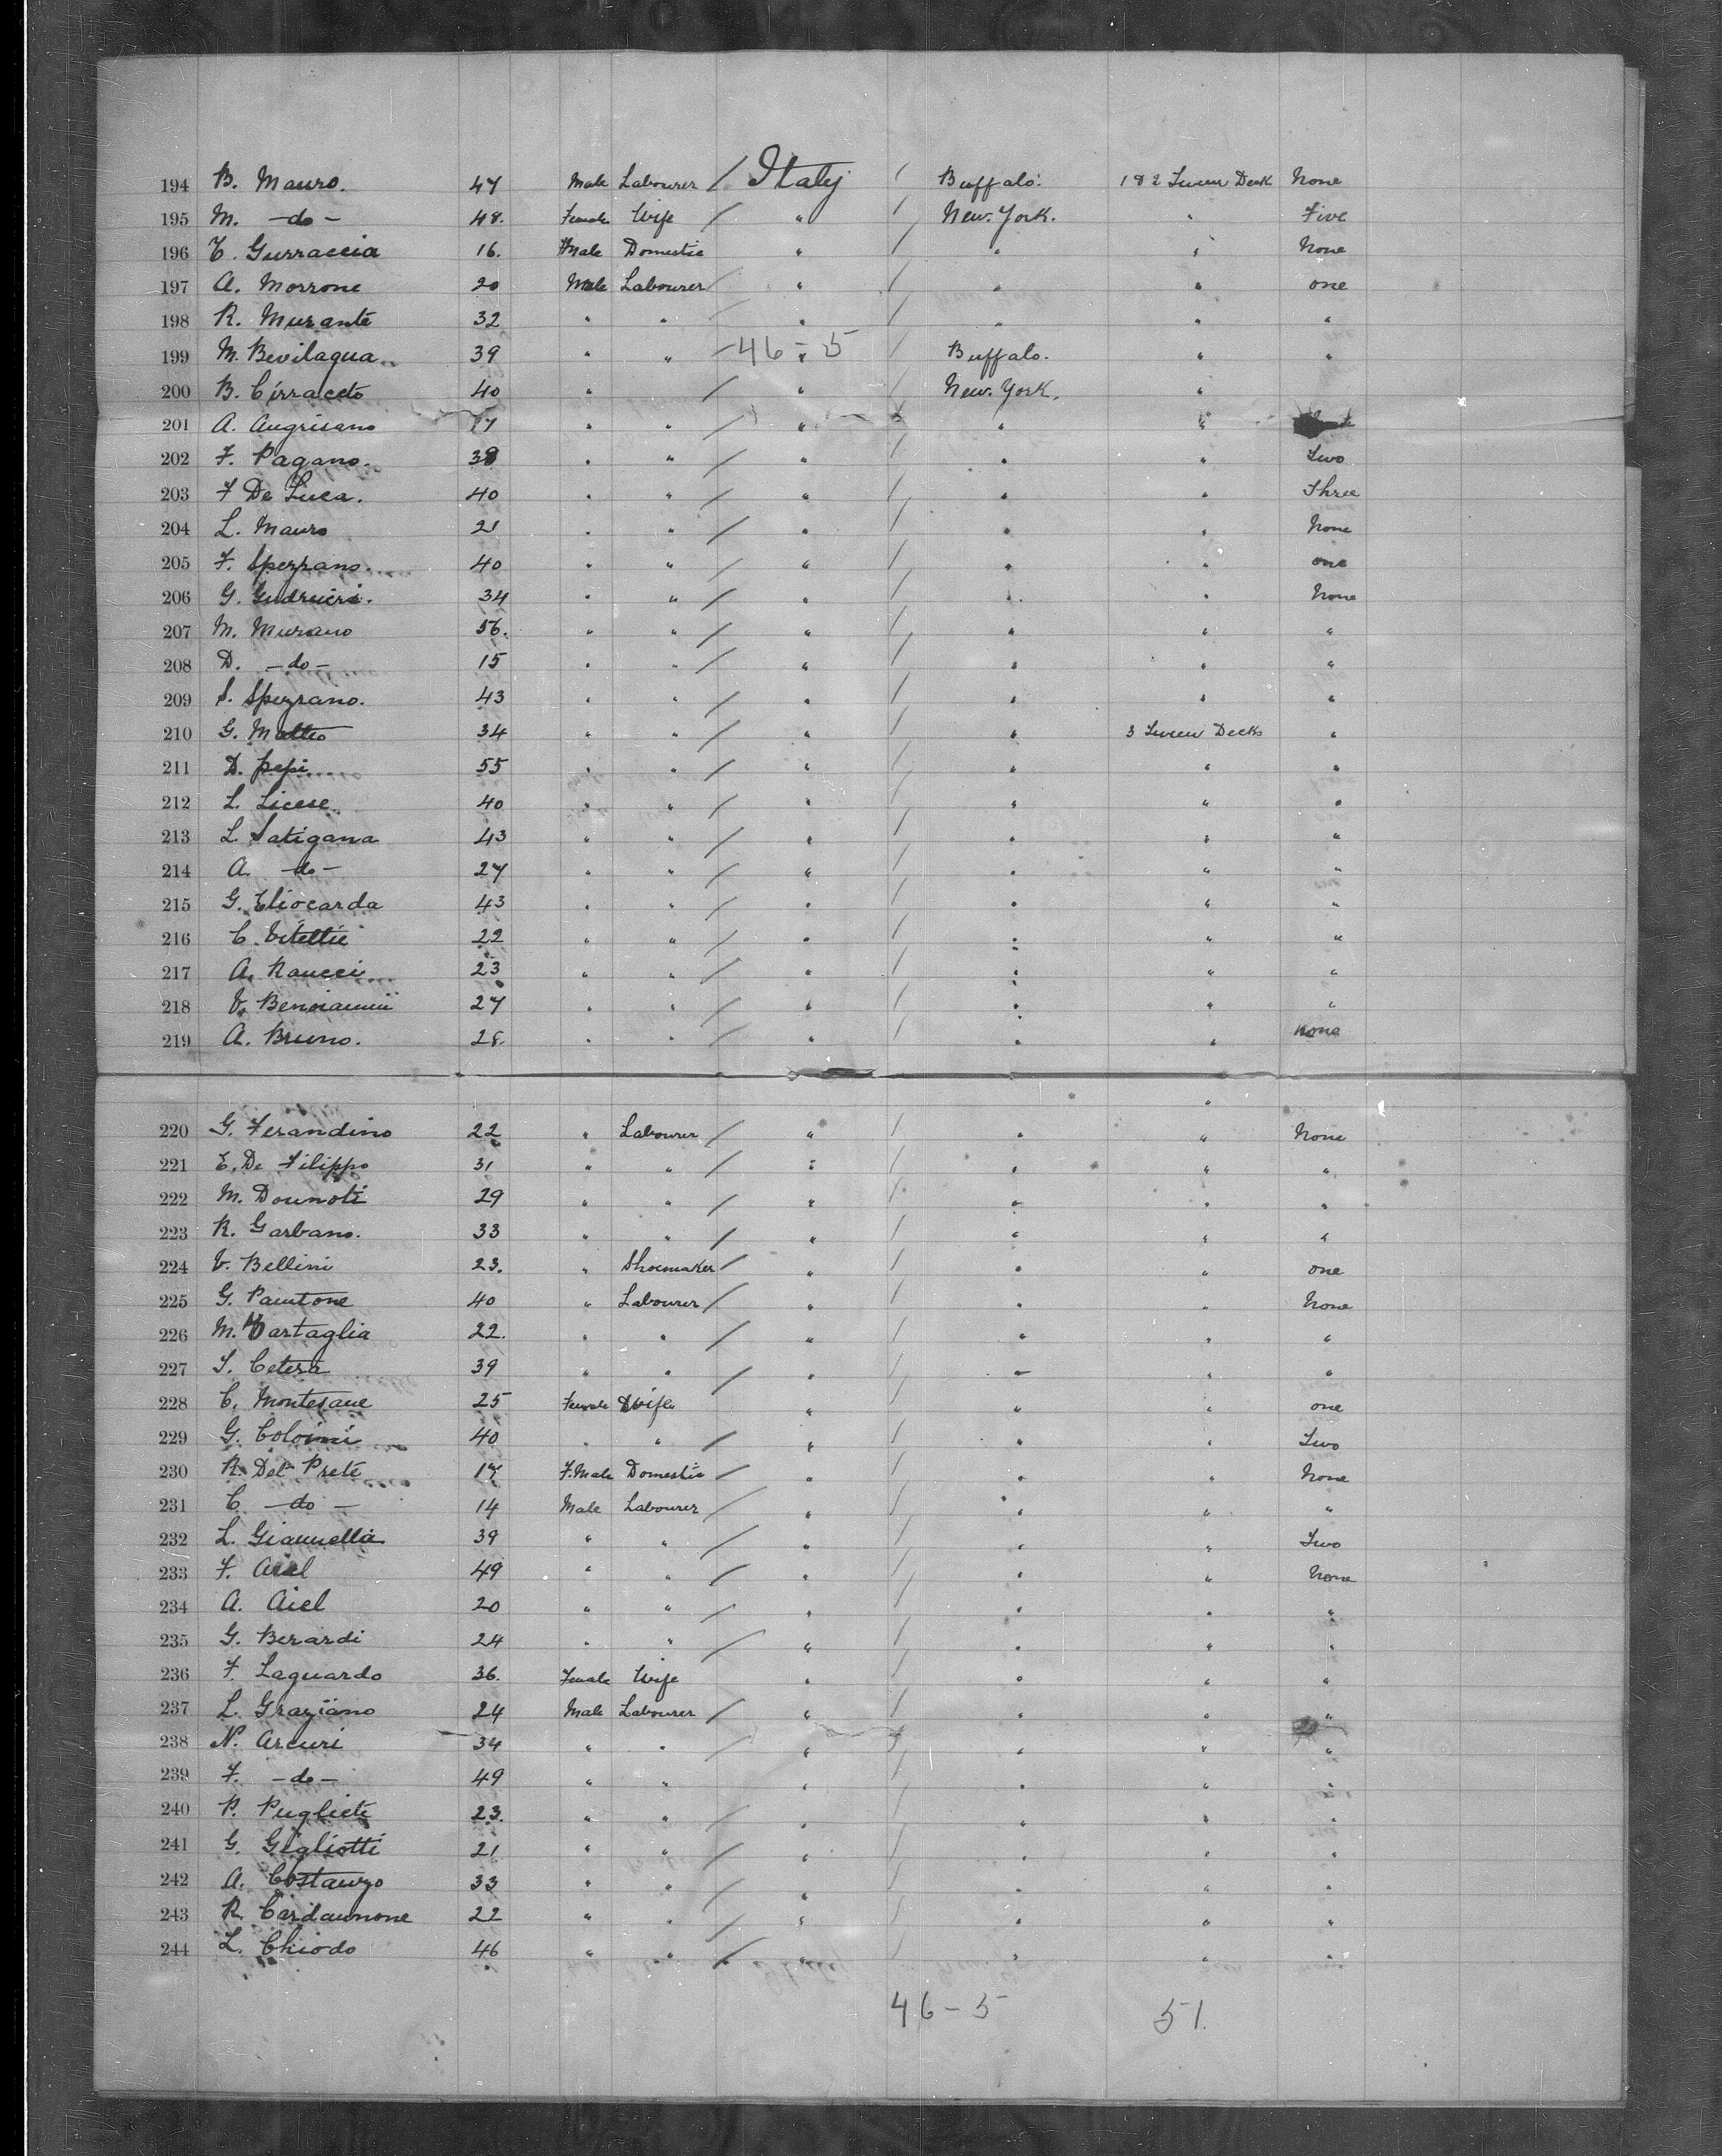 194 B. Mauro. 47 Male Labourer / Italy / Buffalo. 1 & 2 Tween Deck None
195 M. -do- 48. Female Wife / " / New. York. " Five
196 Gurraccia 16. Domestic " / " " None
197 A. Morrone 20 Male Labourer / " / " " one
198 R. Murante 32 " " " / " " "
199 M. Bevilaqua 39 " " 46-5 / Buffalo. " "
200 B. Cirraceto 40 " / " / New. York. "
201 A. Augrisano " " / " / " "
202 F. Pagano. " " / " / " " Two
203 F De Luca. 40 " " / " / " " Three
204 L. Mauro 21 " " / " / " " None
205 F. Spezzano. 40 " " / " / " " one
206 G. 34 " " / " / " " None
207 M. Murano 56. " " / " / " " "
208 D. -do- 15 " " / " / " " "
209 S. Spezzano. 43 " " / " / " " "
210 G. Matteo 34 " " / " / " 3 Tween Decks "
211 D. Pepi 55 " " / " / " " "
212 L. Licese 40 " " / " / " " "
213 L. Satigana 43 " " / " / " " "
214 A. -do- 27 " " / " / " " "
215 G. Eliocarda 43 " " / " / " " "
216 22 " " / " / " " "
217 A. Raucci 23 " " / " / " " "
218 V. 27 " " / " / " " "
219 A. Bruno. 28. " " / " / " " None
"
220 G. Ferandino 22 " Labourer / " / " " None
221 E. De Filippo 31 " " / " / " " "
222 M. Dounoti 29 " " / " / " " "
223 R. Garbano. 33 " " / " / " " "
224 V. Bellini 23. " Shoemaker / " / " " one
225 G. Pauntone 40 " Labourer / " / " " None
226 M. Tartaglia 22. " " / " / " " "
227 Cetera 39 " " / " / " " "
228 C. Montesane 25 Female Wife " / " " one
229 G. Coloimi 40 " " / " / " " Two
230 R. Del Prete 17 F.Male Domestic / " / " " None
231 C -do- 14 Male Labourer / " / " " "
232 L. Giannella 39 " " / " / " " Two
233 F. Aiel 49 " " / " / " " None
234 A. Aiel 20 " " / " / " " "
235 G. Berardi 24 " " / " / " " "
236 F. Laguardo 36. Female Wife " / " " "
237 L. Graziano 24 Male Labourer / " / " " "
238 N. Arcuri 34 " " / " / " " "
239 F. -do- 49 " " / " / " " "
240 P. Pugliete 23. " " / " / " " "
241 G. Gigliotti 21 " " / " / " " "
242 A. Costanzo 33 " " / " / " " "
243 R. Cardamnone 22 " " / " / " " "
244 L. Chiodo 46 " " / " / " " "
46-5 51.